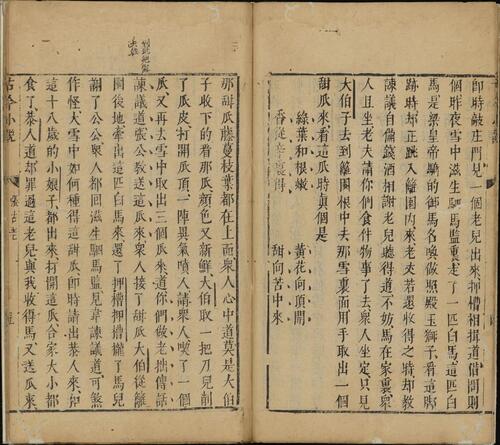 即時敲庄門見一個老兒出來押槽相揖道借問則
個昨夜雪中滋生駟馬監走了一匹白馬這匹白
馬是梁皇帝騎的御馬名喚做照殿玉獅子看這脚
跡時却正跳入籬園內來老丈若還收得之時却教
諫議自備錢酒相謝老兒聽得道不妨馬在家裏衆
人且坐老夫請你們食件物事了去衆人坐定只見
大伯子去到籬園根中去那雪裏面用手取出一個
甜瓜來看這瓜時真個是
綠葉和根嫩　黄花向頂開
香從辛裏得　甜向苦中來
那甜瓜藤蔓枝葉都在上面衆人心中道莫是大伯
子收下的看那瓜顏色又新鮮大伯取一把刀兒削
了瓜皮打開瓜頂一陣異氣噴人請衆人喫了一個
瓜又再去雪中取出三個瓜來道你們做老拙傳話
諫議道張公教送這瓜來衆人接了甜瓜大伯從籬
園後地牽出這匹白馬來還了押槽押槽攏了馬兒
謝了公公衆人都回滋生駟馬監見韋諫議道可煞
作怪大雪中如何種得這甜瓜即時請出恭人來和
這十八歲的小娘子都出來打開這瓜合家大小都
食了恭人道却罪過這老兒與我收得馬又送瓜來
古今小說
張古老